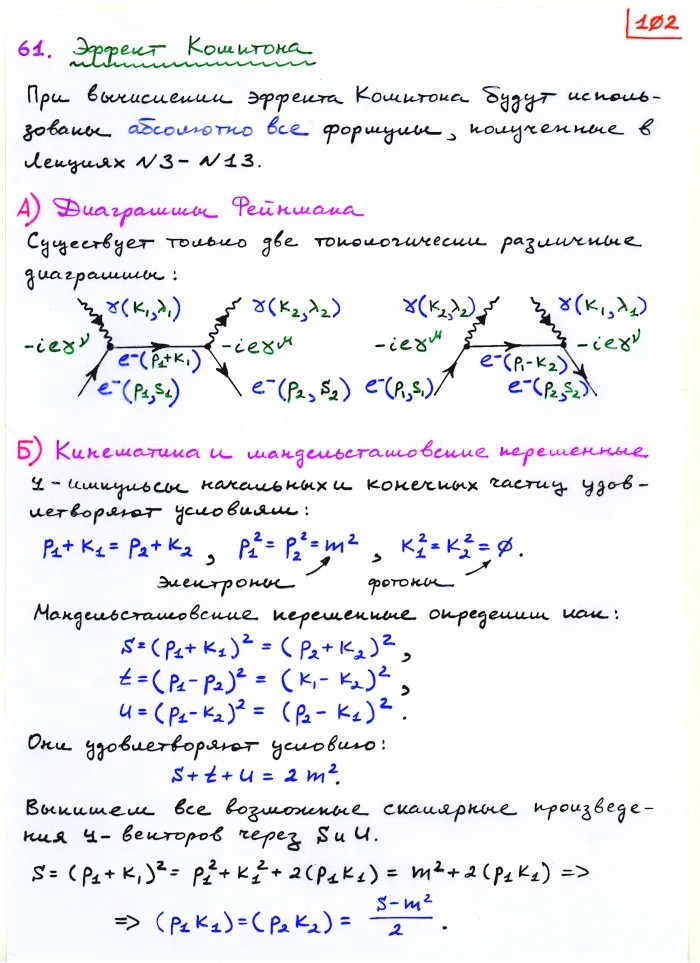 102
61. Эффект Комптона
При вычислении эффекта Комптона будут исполь-
зованы абсолютно все формулы, полученные в
Лекциях №3 - №13.
А) Диаграммы Фейнмана
Существует только две топологически различные
диаграммы:
γ(k₁,λ₁) γ(k₂,λ₂) γ(k₂,λ₂) γ(k₁,λ₁)
-ieγ^ν e⁻(p₁+k₁) -ieγ^μ -ieγ^μ e⁻(p₁-k₂) -ieγ^ν
e⁻(p₁,s₁) e⁻(p₂,s₂) e⁻(p₁,s₁) e⁻(p₂,s₂)
Б) Кинематика и мандельстамовские переменные
4-импульсы начальных и конечных частиц удов-
летворяют условиям:
p₁+k₁=p₂+k₂, p₁²=p₂²=m², k₁²=k₂²=0.
электроны фотоны
Мандельстамовские переменные определим как:
s=(p₁+k₁)²=(p₂+k₂)²,
t=(p₁-p₂)²=(k₁-k₂)²,
u=(p₁-k₂)²=(p₂-k₁)².
Они удовлетворяют условию:
s+t+u=2m².
Выпишем все возможные скалярные произведе-
ния 4-векторов через s и u.
s=(p₁+k₁)²=p₁²+k₁²+2(p₁k₁)=m²+2(p₁k₁) =>
=> (p₁k₁)=(p₂k₂)= (s-m²)/2.